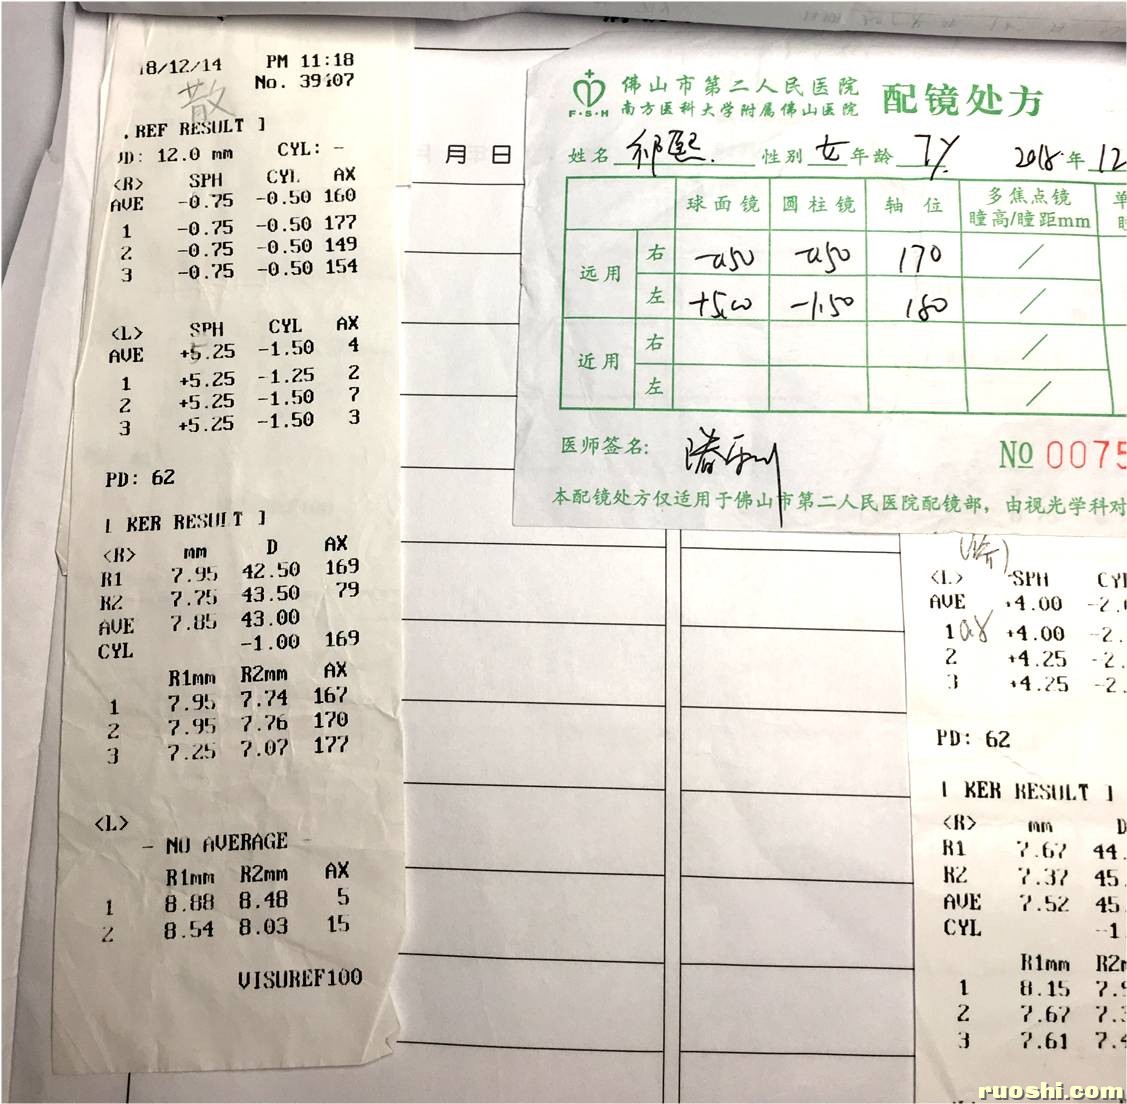 18/12/14 PM 11:18
No. 39407
散
REF RESULT ]
VD: 12.0 mm CYL: -
<R> SPH CYL AX
AVE -0.75 -0.50 160
1 -0.75 -0.50 177
2 -0.75 -0.50 149
3 -0.75 -0.50 154
<L> SPH CYL AX
AVE +5.25 -1.50 4
1 +5.25 -1.25 2
2 +5.25 -1.50 7
3 +5.25 -1.50 3
PD: 62
[ KER RESULT ]
<R> mm D AX
R1 7.95 42.50 169
R2 7.75 43.50 79
AVE 7.85 43.00
CYL -1.00 169
R1mm R2mm AX
1 7.95 7.74 167
2 7.95 7.76 170
3 7.25 7.07 177
<L>
- NO AVERAGE -
R1mm R2mm AX
1 8.88 8.48 5
2 8.54 8.03 15
VISUREF100
月 日
F·S·H
佛山市第二人民医院
南方医科大学附属佛山医院
配镜处方
姓名 祁熙 性别 女 年龄 7Y 2018年12
球面镜 圆柱镜 轴位 多焦点镜
瞳高/瞳距mm
远用 右 -0.50 -0.50 170 /
左 +5.00 -1.50 180 /
近用 右 /
左 /
医师签名:
No 0075
本配镜处方仅适用于佛山市第二人民医院配镜部，由视光学科对
<L> SPH CYL
AVE +4.00 -2.
1 +4.00 -2.
0.8
2 +4.25 -2.
3 +4.25 -2.
PD: 62
[ KER RESULT ]
<R> mm D
R1 7.67 44.
R2 7.37 45.
AVE 7.52 45.
CYL -1
R1mm R2m
1 8.15 7.9
2 7.67 7.3
3 7.61 7.4
ruoshi.com